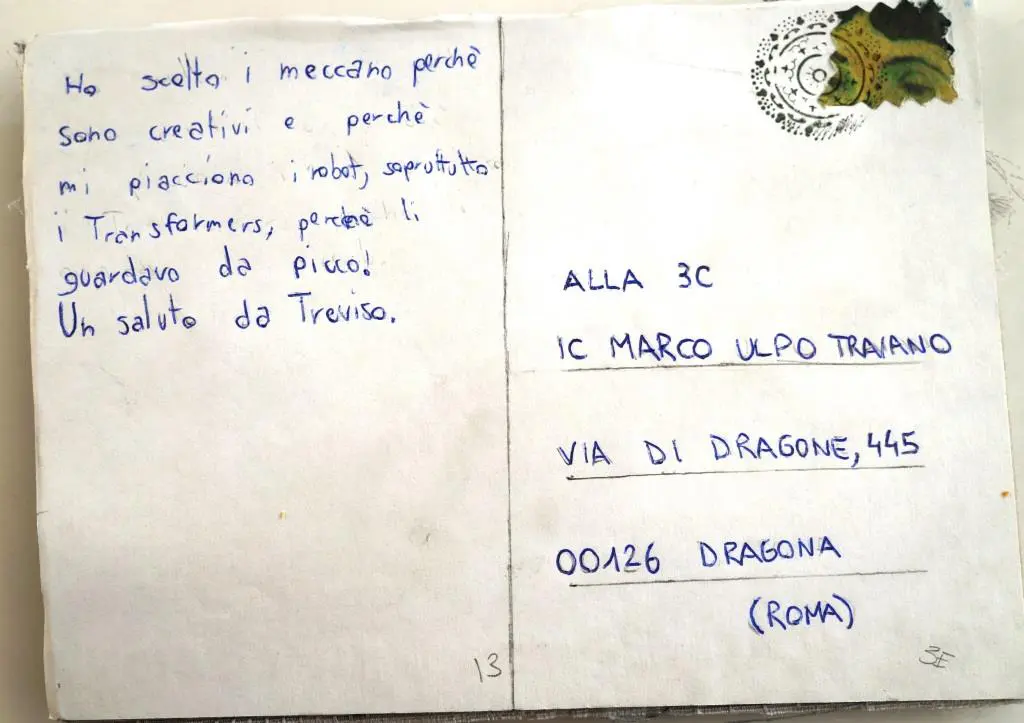 Ho scelto i meccano perchè
sono creativi e perchè
mi piacciono i robot, sopruttutto
i Transformers, perchè li
guardavo da picco!
Un saluto da Treviso.
ALLA 3C
IC MARCO ULPO TRAIANO
VIA DI DRAGONE, 445
00126 DRAGONA
(ROMA)
13
3E